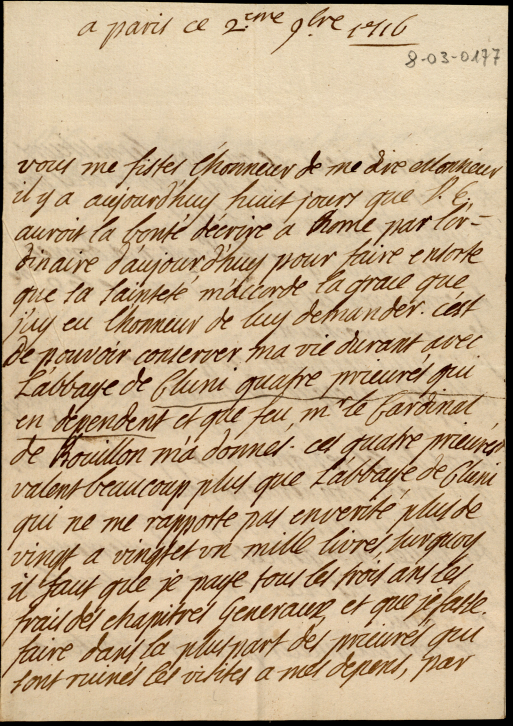 a paris ce 2.eme 9bre 1716
8-03-0177
vous me fistes l'honneur de me dire Monsieur
il y a aujourd'huy huit jours que V. E.
auroit la bonté d'écrire a Rome par l'or-
dinaire d'aujourd'huy pour faire ensorte
que sa sainteté m'accorde la grace que
j'ay eu l'honneur de luy demander. c'est
de pouvoir conserver ma vie durant avec
L'abbaye de Cluni quatre prieurés qui
en dependent et que feu mr le Cardinal
de Bouillon m'a donnés. ces quatre prieurés
valent beaucoup plus que L'abbaye de Cluni
qui ne me rapporte pas en verité plus de
vingt a vingt et un mille livres, surquoy
il faut que je paye tous les trois ans les
frais des chapitres Generaux et que je fasse
faire dans la pluspart des prieurés qui
sont ruinés les visites a mes depens, par